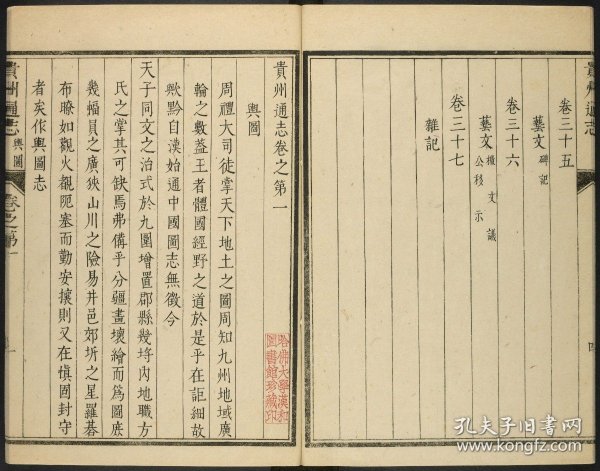 貴州通志
卷三十五
藝文 碑記
卷三十六
藝文 檄 文 議
公移 示
卷三十七
雜記
貴州通志卷之第一
輿圖
周禮大司徒掌天下地土之圖周知九州地域廣
輪之數葢王者體國經野之道於是乎在詎細故
歟黔自漢始通中國圖志無徵今
天子同文之治式於九圍增置郡縣幾埒內地職方
氏之掌其可缺焉弗備乎分疆畫壤繪而爲圖庶
幾幅員之廣狹山川之險易井邑郊圻之星羅碁
布瞭如觀火覩阨塞而勤安攘則又在愼固封守
者矣作輿圖志
貴州通志 輿圖 卷之第一
哈佛大學漢和
圖書館珍藏印
孔夫子旧书网
www.kongfz.com